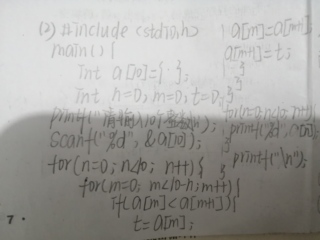 (2) #include <stdio.h>
main() {
int a[10]={ };
int n=0, m=0, t=0;
printf("请输入10个整数");
scanf("%d", &a[10]);
for(n=0; n<10; n++){
for(m=0; m<10-n; m++){
if(a[m]<a[m+1]){
t=a[m];
a[m]=a[m+1];
a[m+1]=t;
}
}
}
for(n=0; n<10; n++)
printf("%d", a[n]);
printf("\n");
}
7.